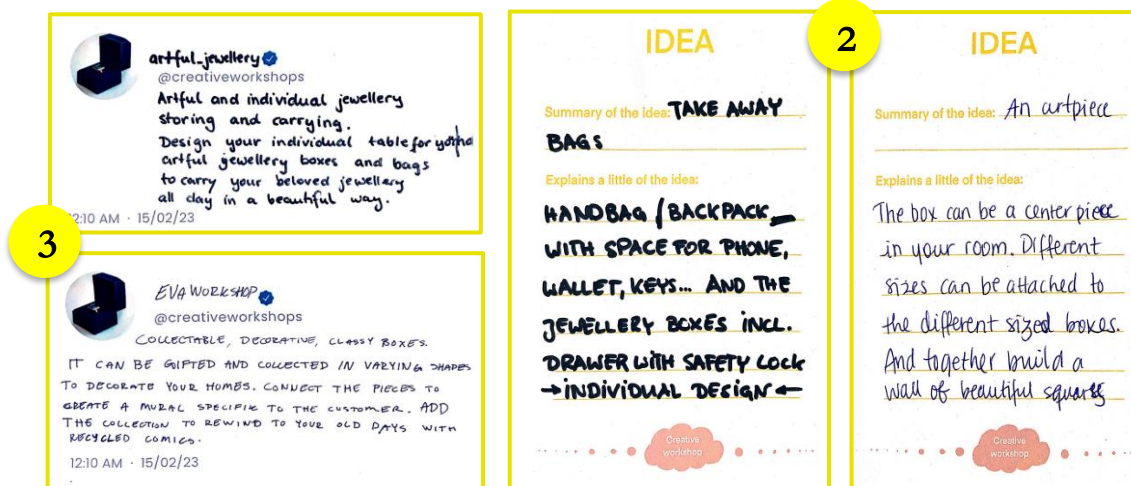 artful_jewellery
@creativeworkshops
Artful and individual jewellery
storing and carrying.
Design your individual table for
artful jewellery boxes and bags
to carry your beloved jewellery
all day in a beautiful way.
12:10 AM · 15/02/23
3
EVA WORKSHOP
@creativeworkshops
COLLECTABLE, DECORATIVE, CLASSY BOXES.
IT CAN BE GIFTED AND COLLECTED IN VARYING SHAPES
TO DECORATE YOUR HOMES. CONNECT THE PIECES TO
CREATE A MURAL SPECIFIK TO THE CUSTOMER. ADD
THE COLLECTION TO REWIND TO YOUR OLD DAYS WITH
RECYCLED COMICS.
12:10 AM · 15/02/23
IDEA
Summary of the idea: TAKE AWAY
BAGS
Explains a little of the idea:
HANDBAG / BACKPACK
WITH SPACE FOR PHONE,
WALLET, KEYS... AND THE
JEWELLERY BOXES INCL.
DRAWER WITH SAFETY LOCK
→INDIVIDUAL DESIGN←
Creative
workshop
2
IDEA
Summary of the idea: An artpiece
Explains a little of the idea:
The box can be a center piece
in your room. Different
sizes can be attached to
the different sized boxes.
And together build a
wall of beautiful squares
Creative
workshop